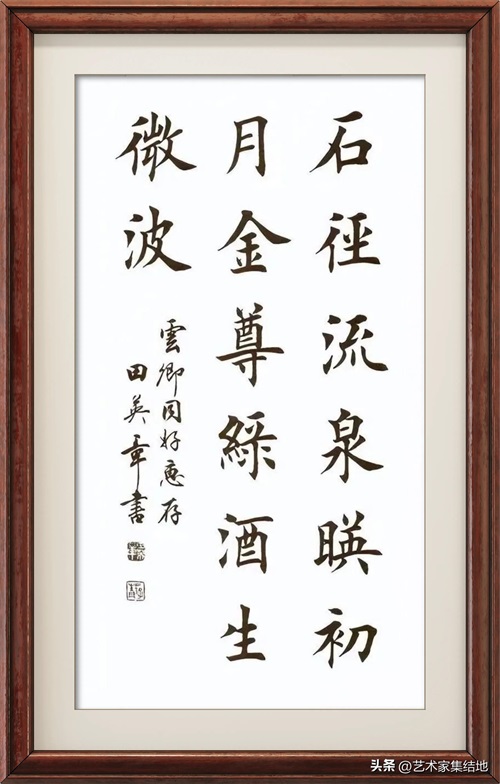 石徑流泉暎初
月金尊綠酒生
微波
雲卿同好惠存
田英章書
头条 @艺术家集结地